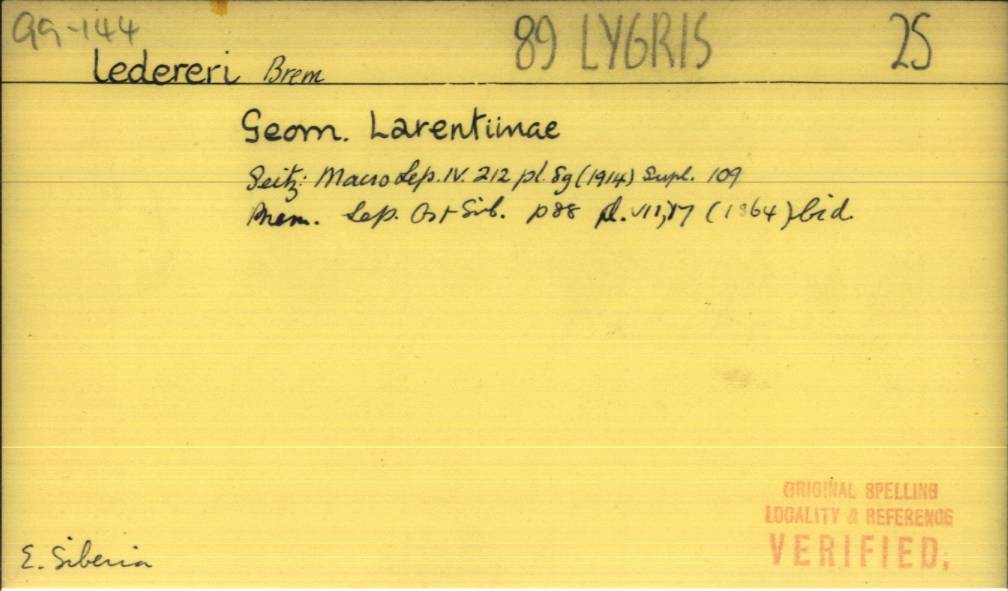 Gg-144
89 LYGRIS 25
ledereri Brem
Geom. Larentiinae
Seitz: Macro Lep. IV. 212 pl. 8g (1914) Supl. 109
Brem. Lep. Ost Sib. p88 pl. VII,17 (1864)
ORIGINAL SPELLING
LOCALITY & REFERENCE
VERIFIED.
E. Siberia